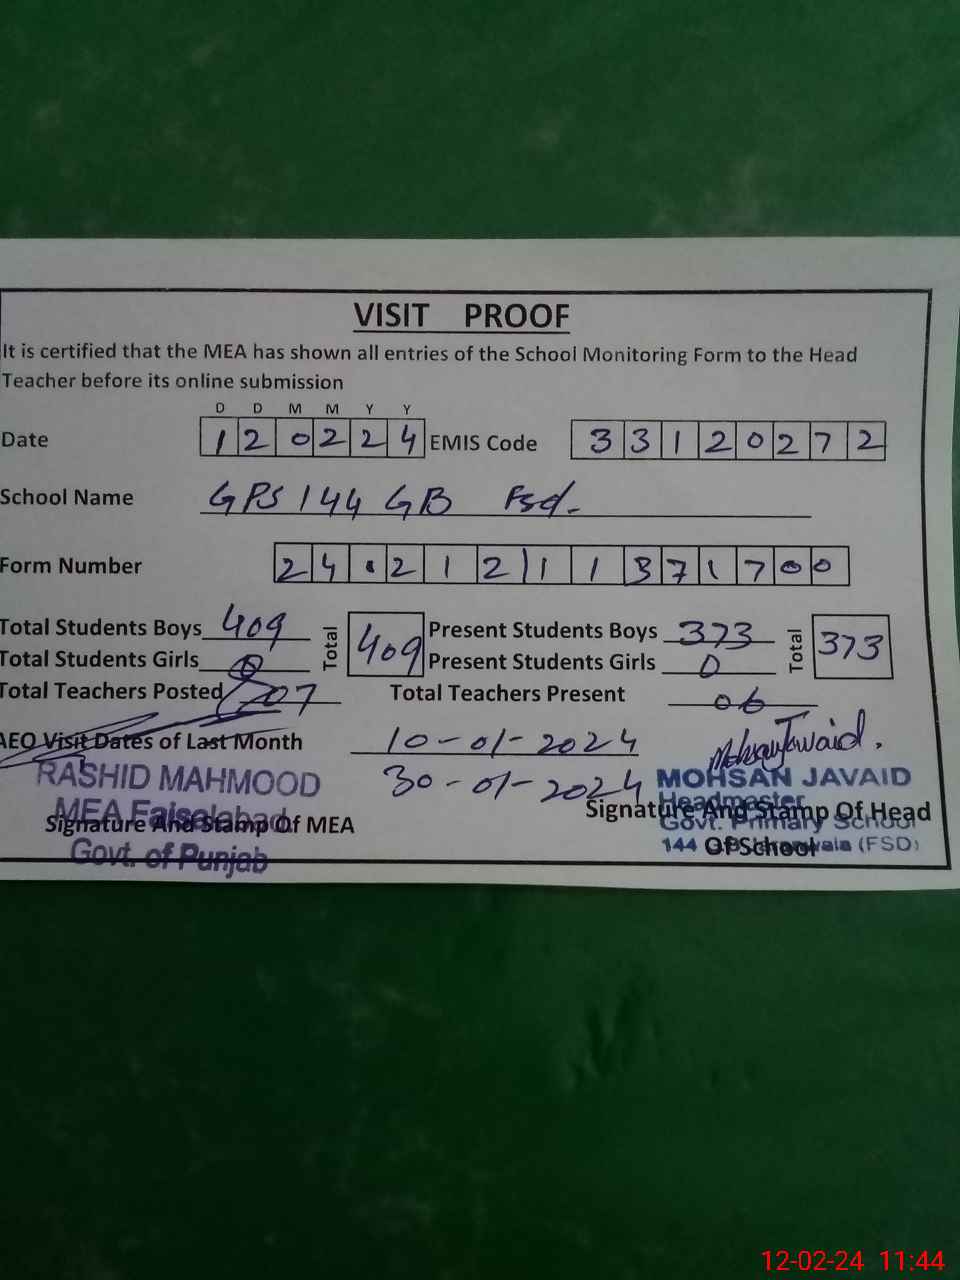 VISIT PROOF
It is certified that the MEA has shown all entries of the School Monitoring Form to the Head
Teacher before its online submission
D D M M Y Y
Date 1 2 0 2 2 4 EMIS Code 3 3 1 2 0 2 7 2
School Name GPS 144 GB Fsd.
Form Number 2 4 . 2 1 2 1 1 1 3 7 1 7 0 0
Total Students Boys 409 Total 409 Present Students Boys 373 Total 373
Total Students Girls 0 Present Students Girls 0
Total Teachers Posted 07 Total Teachers Present 06
AEO Visit Dates of Last Month 10-01-2024
30-01-2024
Mohsan Jawaid.
RASHID MAHMOOD
MEA Faisalabad
Govt. of Punjab
Signature And Stamp Of MEA
MOHSAN JAVAID
Headmaster
Govt. Primary School
144 GB Jaranwala (FSD)
Signature And Stamp Of Head
Of School
12-02-24 11:44